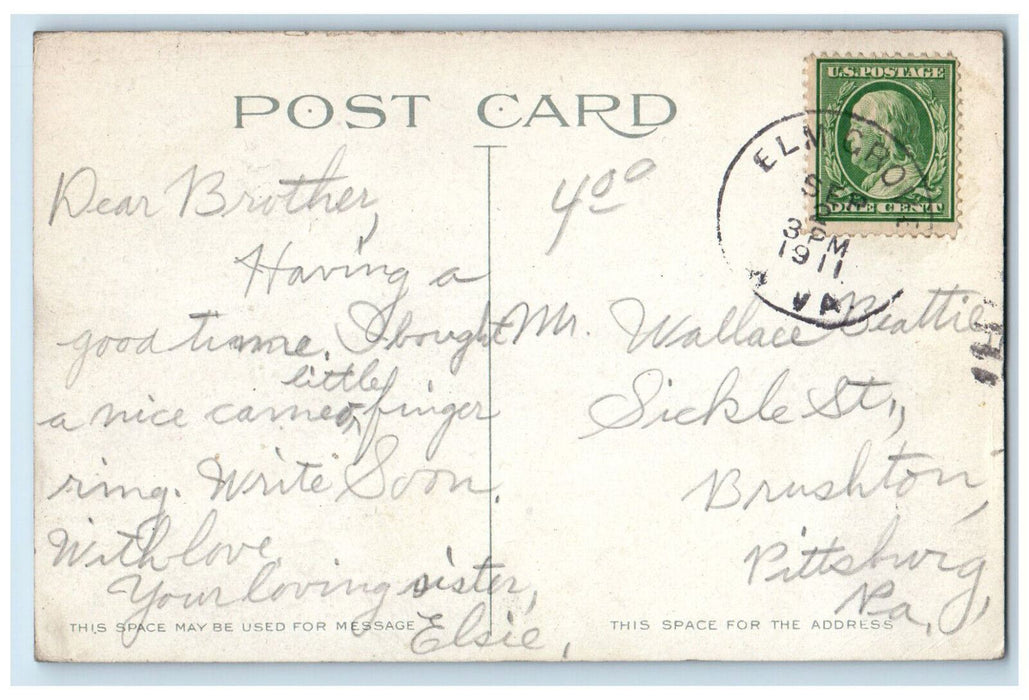 POST CARD
U.S. POSTAGE
ONE CENT
ELM GROVE
SEP
3 PM
1911
VA.
4 00
Dear Brother,
Having a
good time. I bought
little
a nice cameo, finger
ring. Write Soon.
With love.
Your loving sister,
Elsie,
Mr. Wallace Beattie
Sickle St.,
Brushton,
Pittsburg,
Pa,
THIS SPACE MAY BE USED FOR MESSAGE
THIS SPACE FOR THE ADDRESS